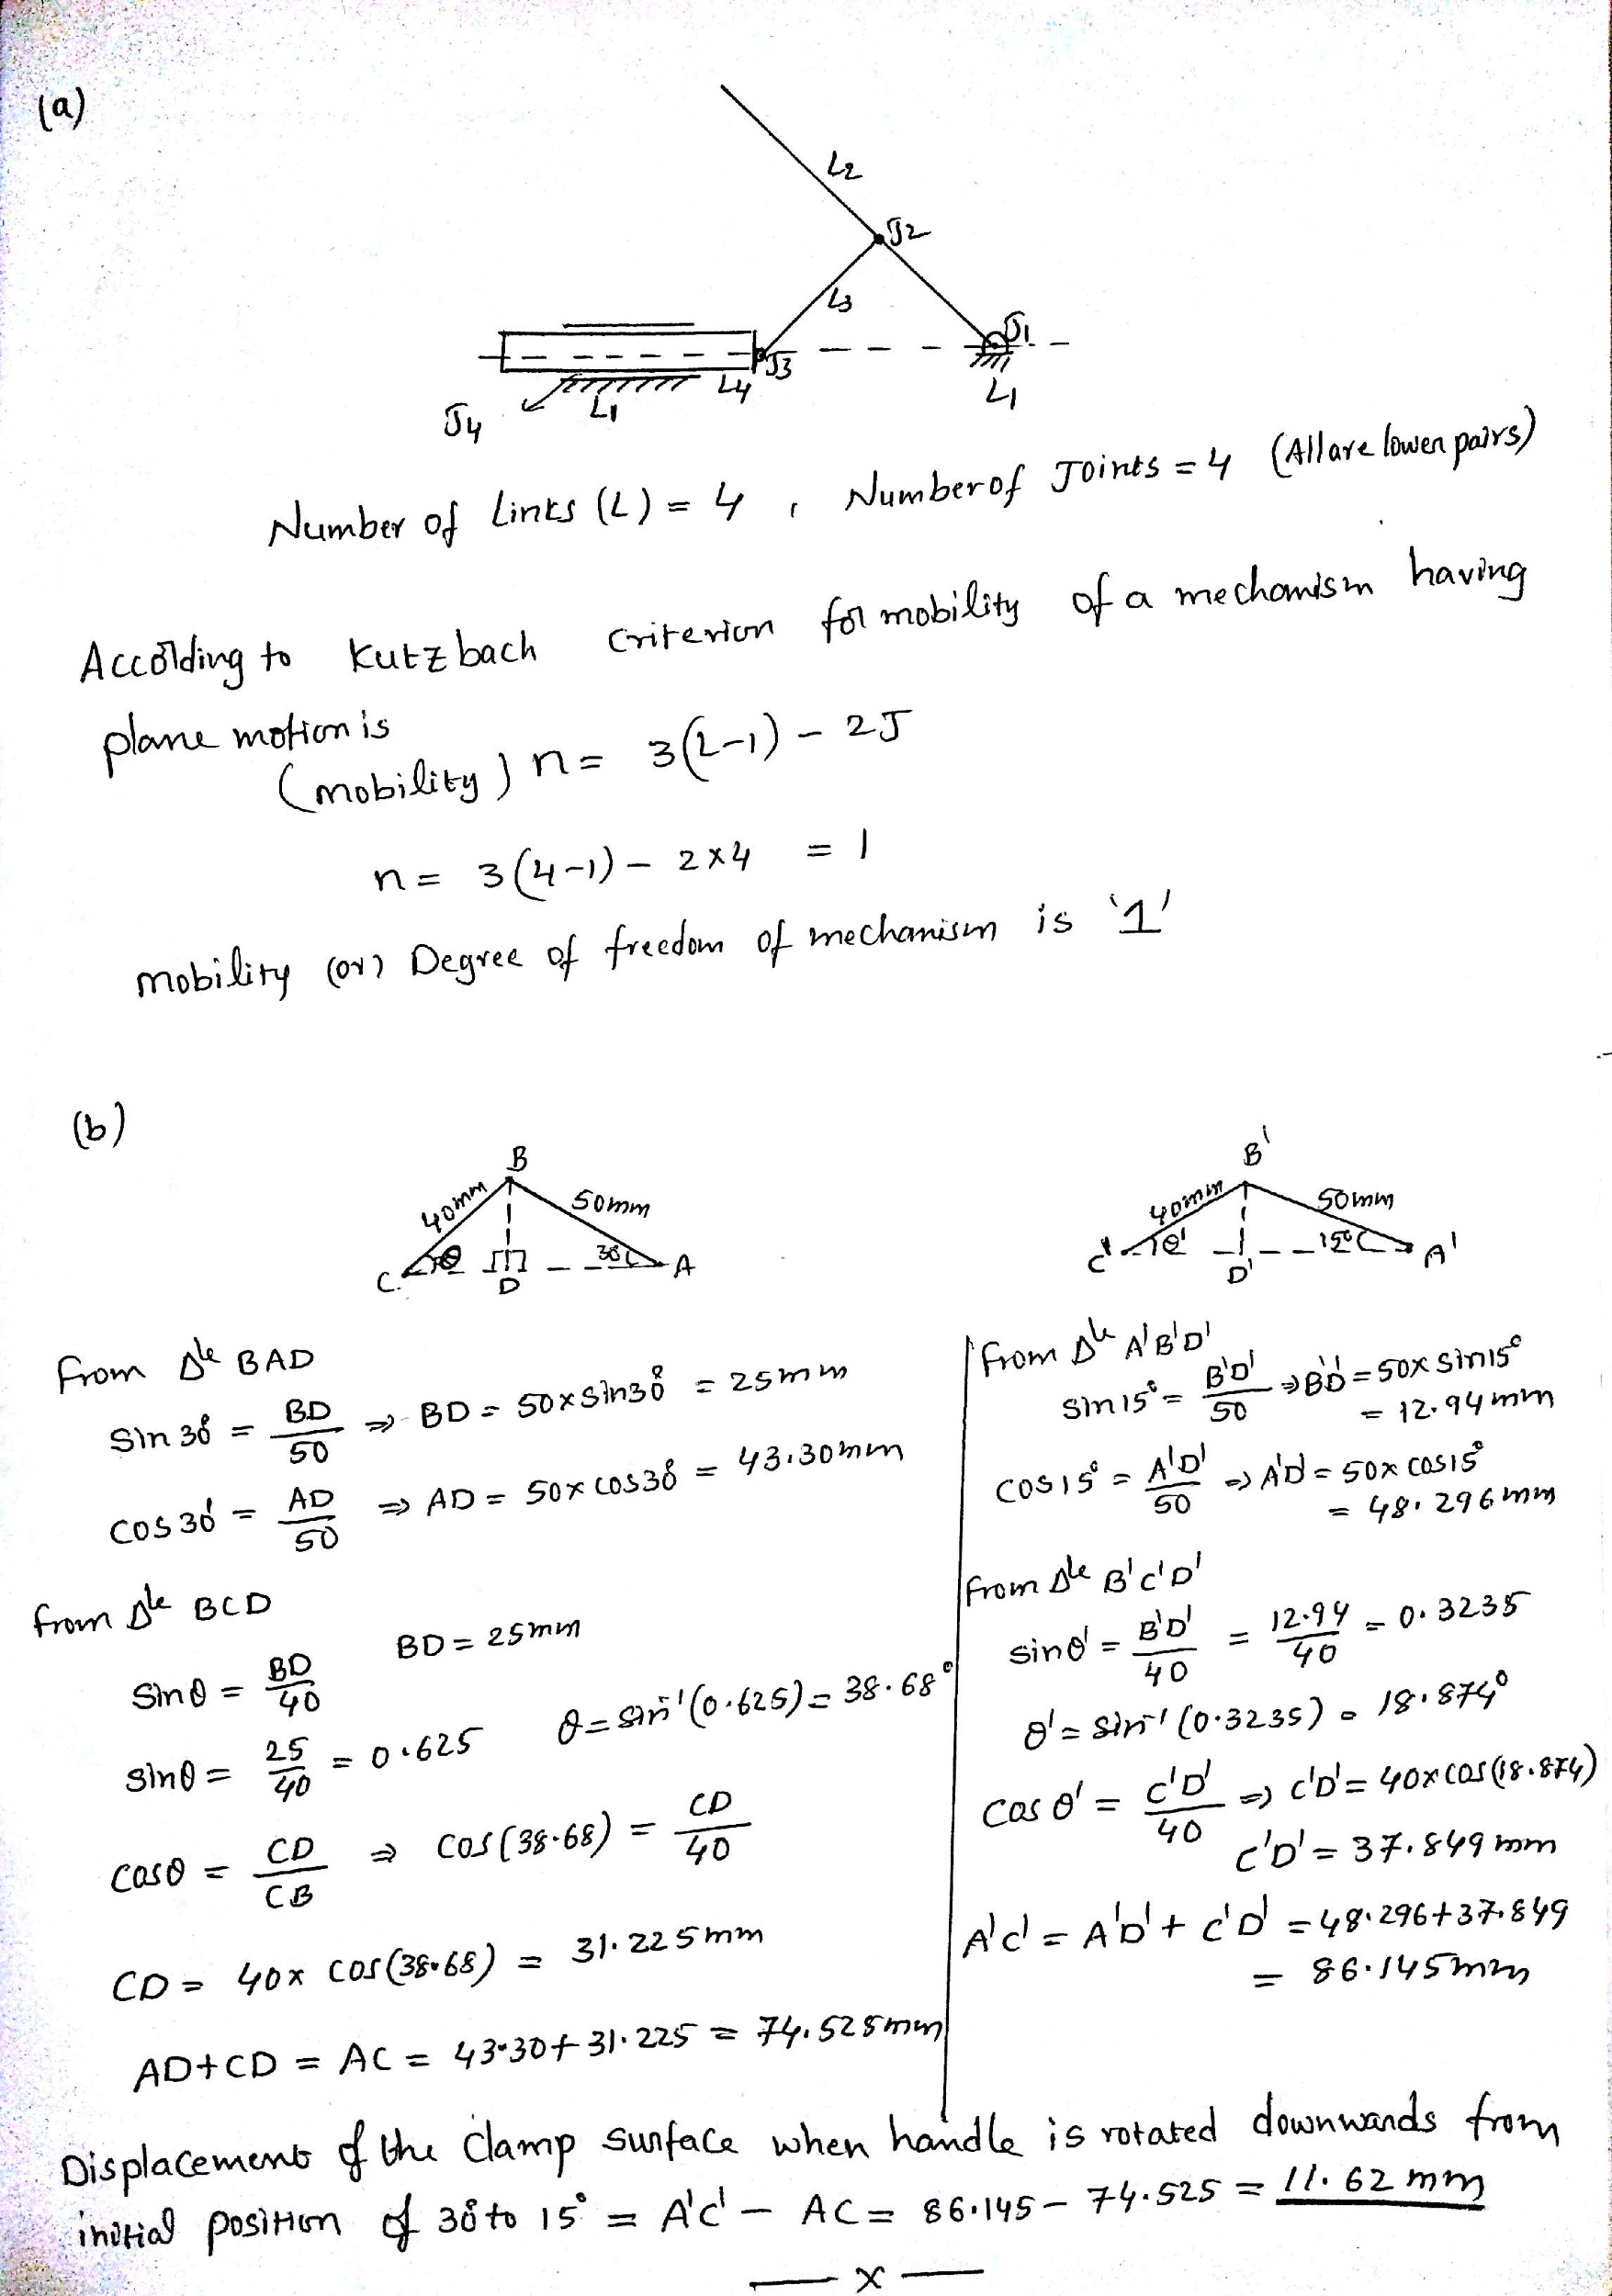 (a)
L2
J2
L3
J1
J3
L4
L1
L1
J4
Number of Links (L) = 4 , Number of Joints = 4 (All are lower pairs)
According to Kutzbach Criterion for mobility of a mechanism having
plane motion is
(mobility) n = 3(L-1) - 2J
n = 3(4-1) - 2×4 = 1
mobility (or) Degree of freedom of mechanism is '1'
(b)
B
40mm
50mm
C θ D 30° A
B'
40mm
50mm
C' θ' D' 15° A'
from Δle BAD
Sin 30° = BD/50 ⇒ BD = 50×sin30° = 25mm
cos 30° = AD/50 ⇒ AD = 50×cos30° = 43.30mm
from Δle BCD
Sinθ = BD/40 BD = 25mm
Sinθ = 25/40 = 0.625 θ = sin⁻¹(0.625) = 38.68°
cosθ = CD/CB ⇒ cos(38.68) = CD/40
CD = 40× cos(38.68) = 31.225mm
AD+CD = AC = 43.30+31.225 = 74.525mm
from Δle A'B'D'
sin15° = B'D'/50 ⇒ B'D' = 50×sin15°
= 12.94mm
cos15° = A'D'/50 ⇒ A'D' = 50×cos15°
= 48.296mm
from Δle B'C'D'
sinθ' = B'D'/40 = 12.94/40 = 0.3235
θ' = sin⁻¹(0.3235) = 18.874°
cosθ' = C'D'/40 ⇒ C'D' = 40×cos(18.874)
C'D' = 37.849mm
A'C' = A'D' + C'D' = 48.296+37.849
= 86.145mm
Displacement of the clamp surface when handle is rotated downwards from
initial position of 30° to 15° = A'C' - AC = 86.145 - 74.525 = 11.62 mm
— x —